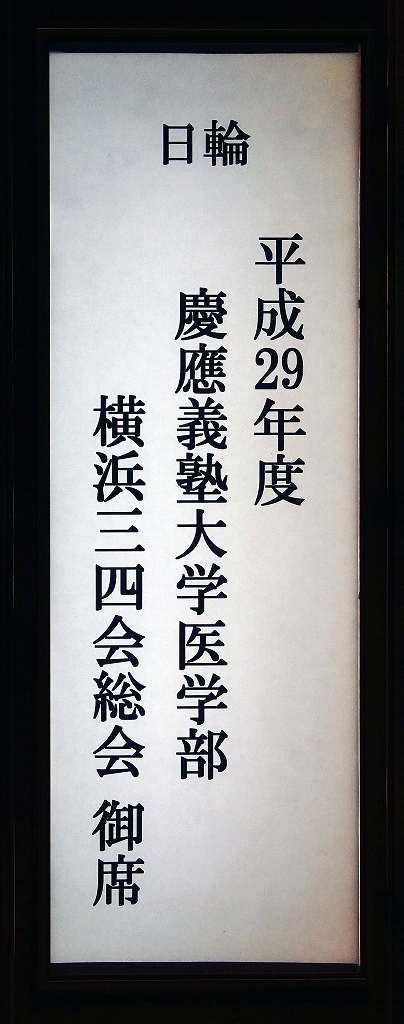 日輪
平成29年度
慶應義塾大学医学部
横浜三四会総会 御席